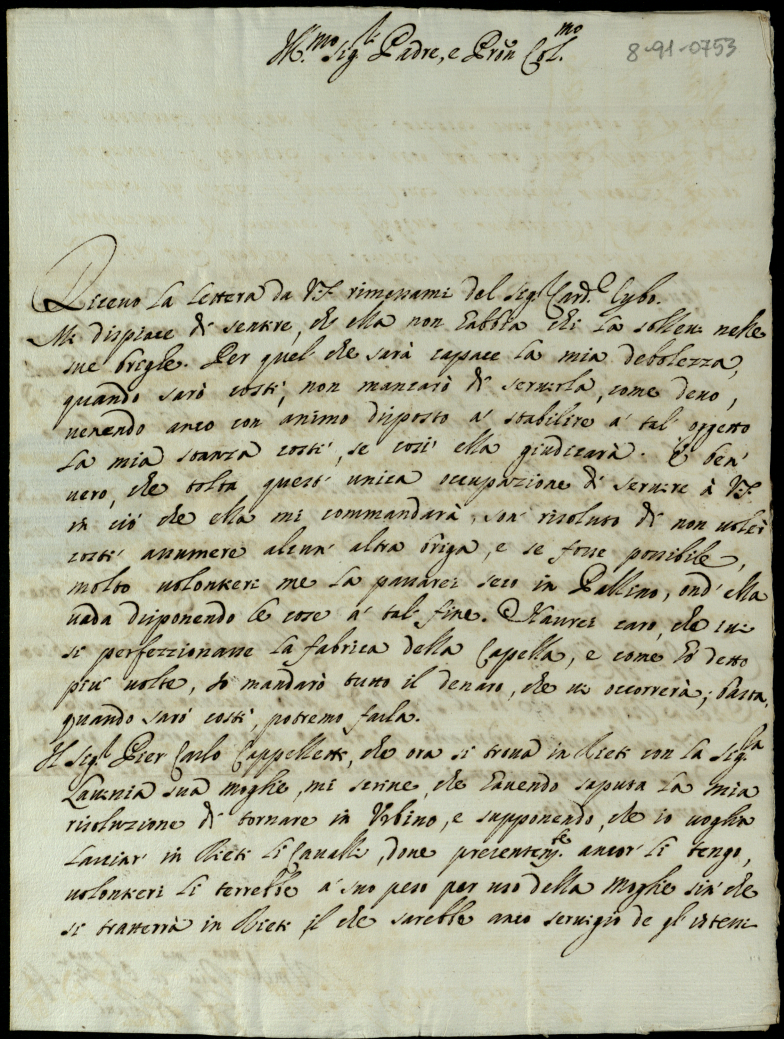 Ill.mo Sig.r Padre, e Pron Col.mo
8-91-0753
Riceuo la lettera da V.S. rimessami del Sig.r Card.e Cybo.
Mi dispiace di sentire, che ella non habbia chi la solleui nelle
sue brighe. Per quel che sarà capace la mia debolezza,
quando sarò costì, non mancarò di seruirla, come deuo,
uenendo anco con animo disposto a' stabilire a' tal' oggetto
la mia stanza costì, se così ella giudicarà. È ben'
uero, che tolta quest' unica occupazione di seruire à V.S.
in ciò che ella mi commandarà, son' risoluto di non uoler
costì assumere alcun' altra briga, e se fosse possibile,
molto uolontieri me la passarei seco in Pallino, ond' ella
uada disponendo le cose a' tal fine. Haurei caro, che iui
si perfezzionasse la fabrica della Capella, e come hò detto
più uolte, Io mandarò tutto il denaro, che ui occorrerà; basta,
quando sarò costì, potremo farla.
Il Sig.r Pier Carlo Cappelletti, che ora si troua in Rieti con la Sig.ra
Lauinia sua moghe, mi scriue, che hauendo saputa la mia
risoluzione di tornare in Vrbino, e supponendo, che io uoglia
lasciar' in Rieti li Caualli, doue presentem.te ancor' li tengo,
uolontieri li terrebbe a' suo peso per uso della moglie sin' che
si tratterrà in Rieti il che sarebbe anco seruigio de gl' istessi